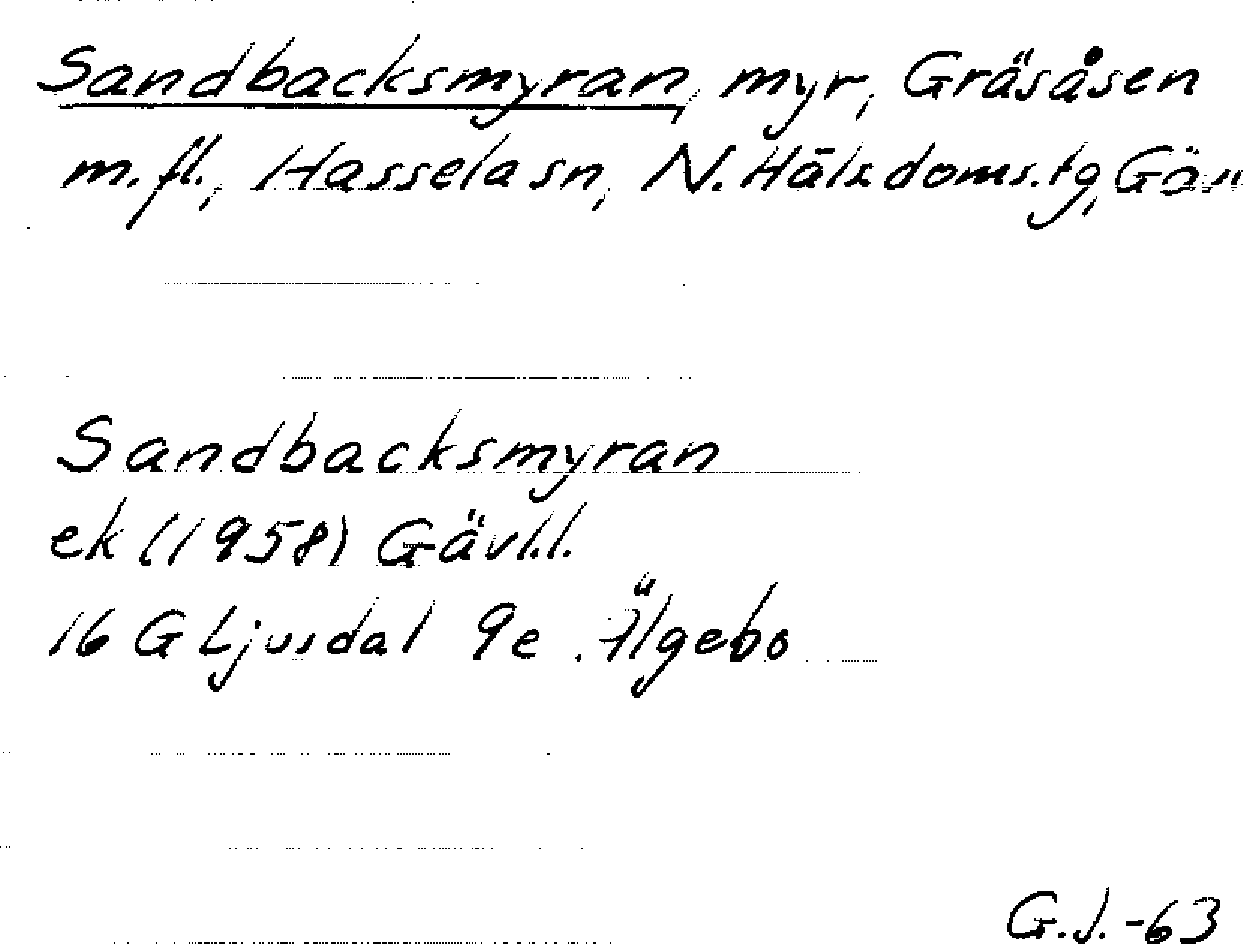 Sandbacksmyran, myr, Gräsåsen
m.fl., Hassela sn, N. Häls. doms. tg,
Sandbacksmyran
ek (1958) Gävl.l.
16 G Ljusdal 9e Älgebo
G.J.-63